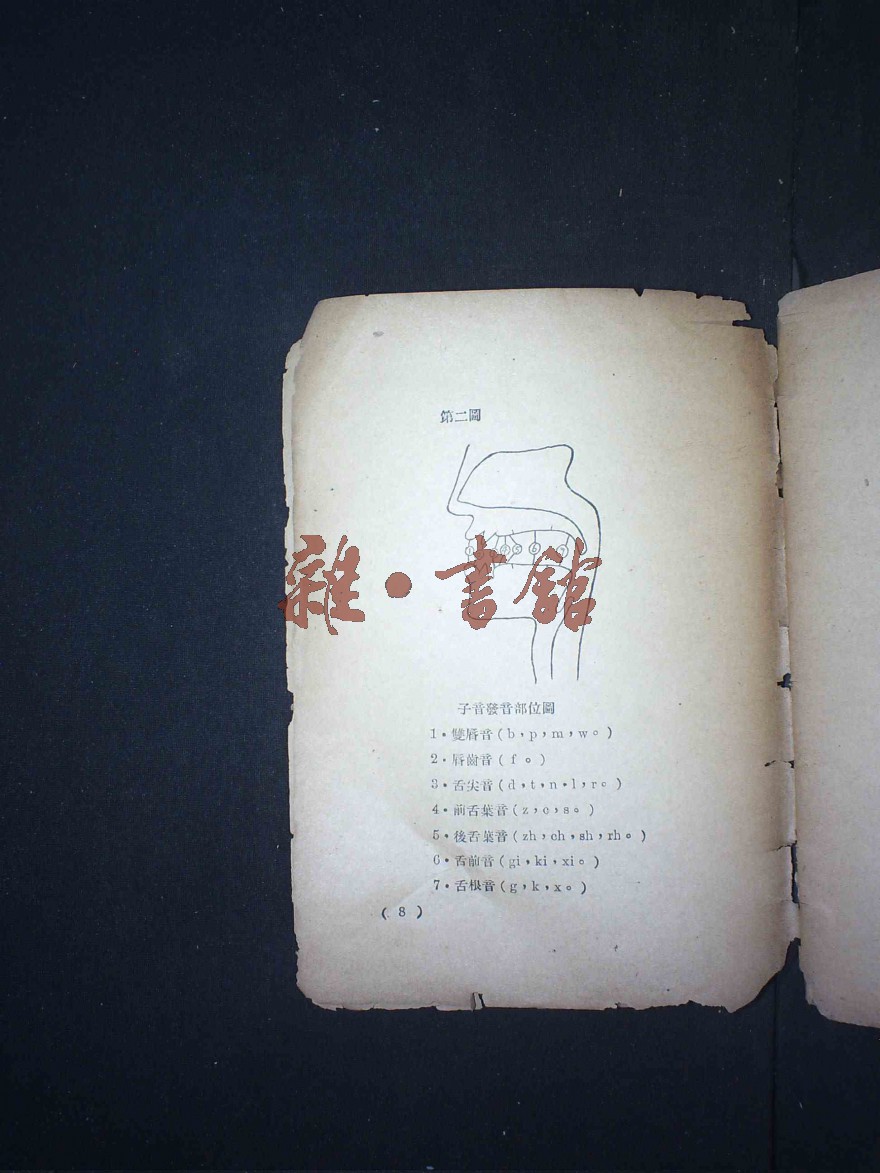 第二圖
1 5 6 7
雜·書館
子音發音部位圖
1·雙唇音(b，p，m，w。)
2·唇齒音(f。)
3·舌尖音(d，t，n·l，r。)
4·前舌葉音(z，c，s。)
5·後舌葉音(zh，ch，sh，rh。)
6·舌前音(gi，ki，xi。)
7·舌根音(g，k，x。)
( 8 )